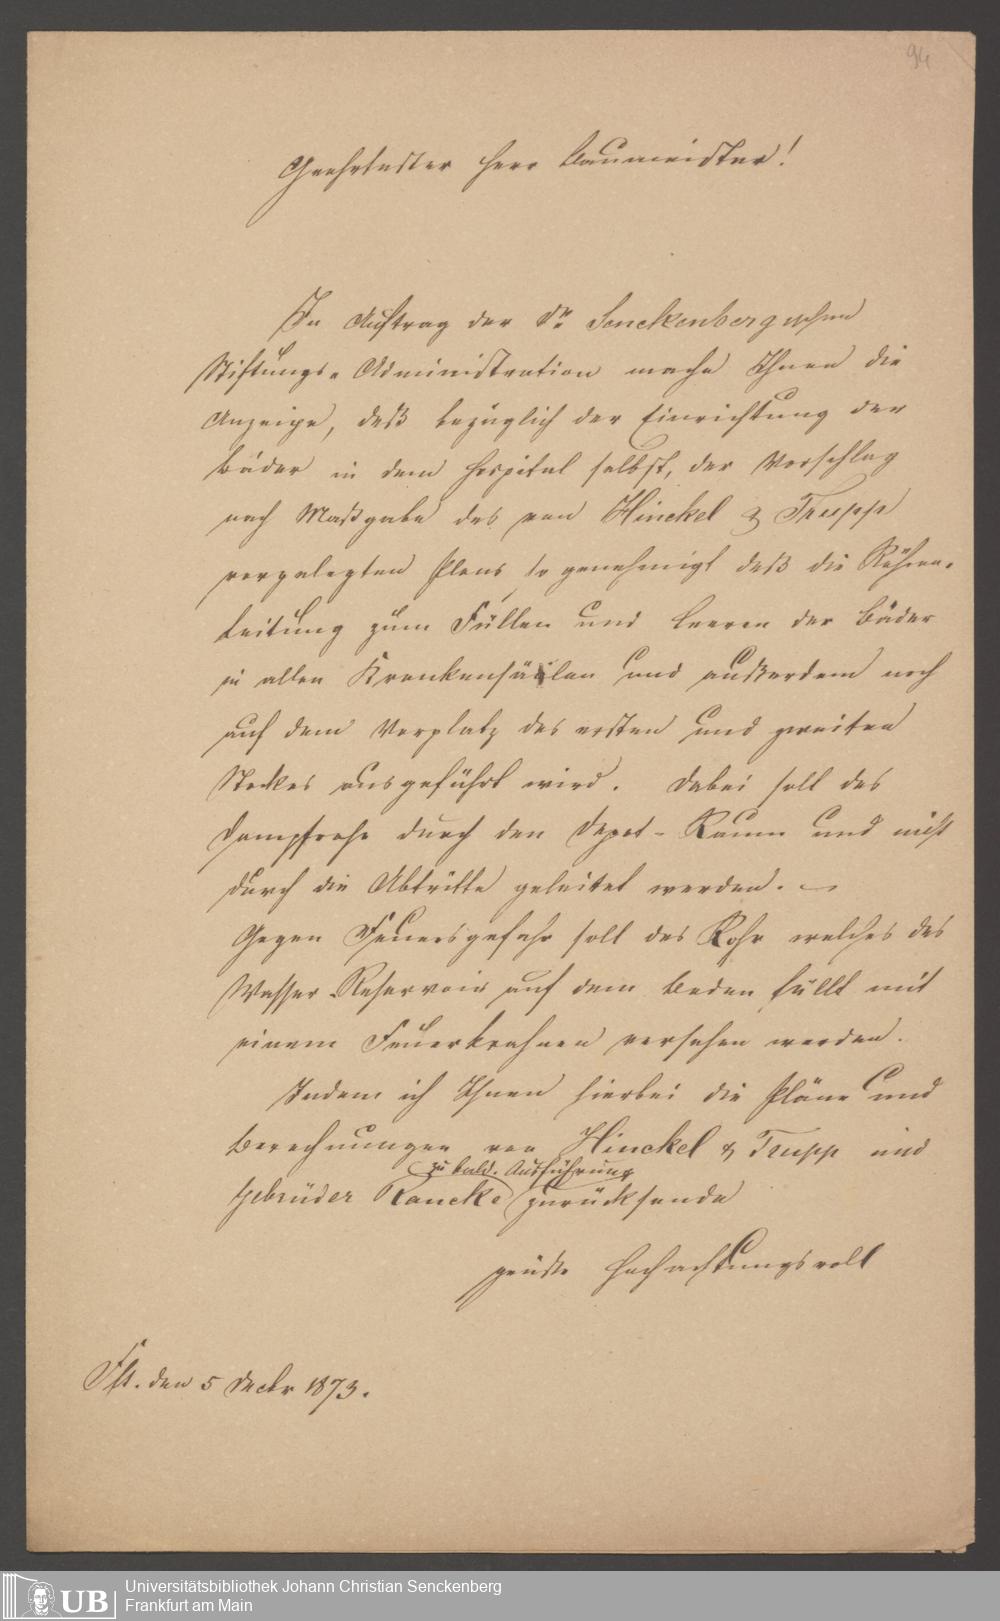 94
Geehrtester Herr Baumeister!
Im Auftrag der Dr. Senckenbergischen
Stiftungs-Administration mache Ihnen die
Anzeige, daß bezüglich der Einrichtung der
Bäder in dem Hospital selbst, der Vorschlag
nach Maßgabe des von Hinckel & Trupp
vorgelegten Plans, so genehmigt daß die Röhren-
Leitung zum Füllen und Leeren der Bäder
in allen Krankensälen und außerdem noch
auf dem Vorplatz des ersten und zweiten
Stockes ausgeführt wird. Dabei soll das
Dampfrohr durch den Depot-Raum und nicht
durch die Abtritte geleitet werden. —
Gegen Feuersgefahr soll das Rohr welches das
Wasser-Reservoir auf dem Boden füllt mit
einem Feuerkrahnen versehen werden.
Indem ich Ihnen hierbei die Pläne und
Berechnungen von Hinckel & Trupp und
zu bald. Ausführung
Gebrüder Rancke zurücksende
grüße Hochachtungsvoll
Fft. den 5 Decbr 1873.
UB
Universitätsbibliothek Johann Christian Senckenberg
Frankfurt am Main